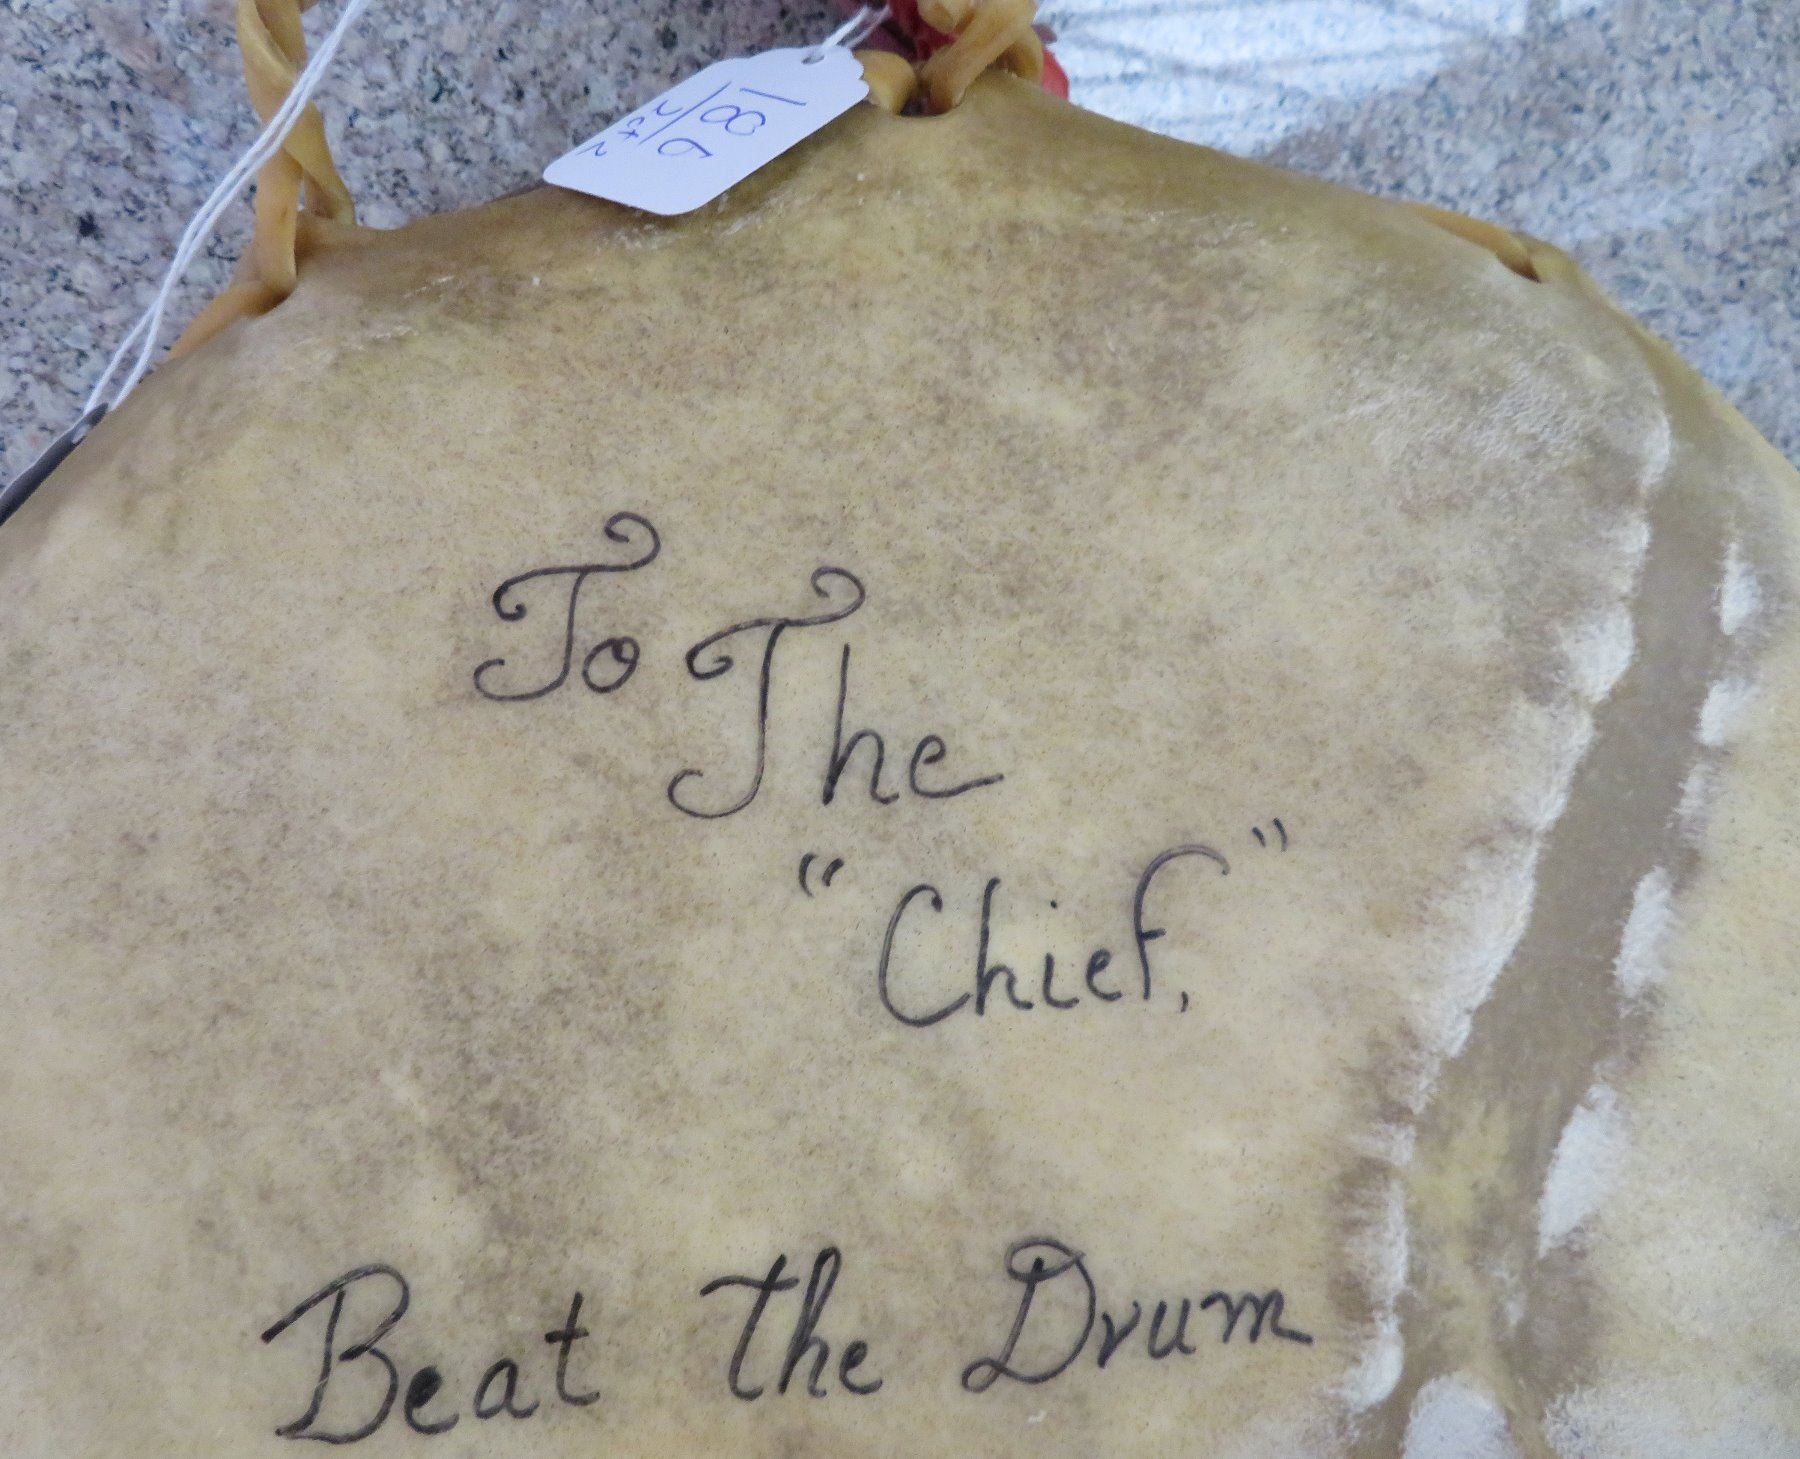 To The
"Chief,"
Beat the Drum